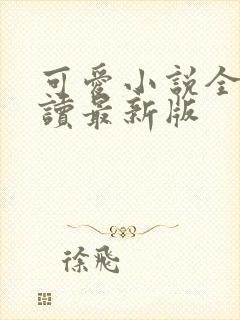 可愛小説全
讀最新版
徐飛